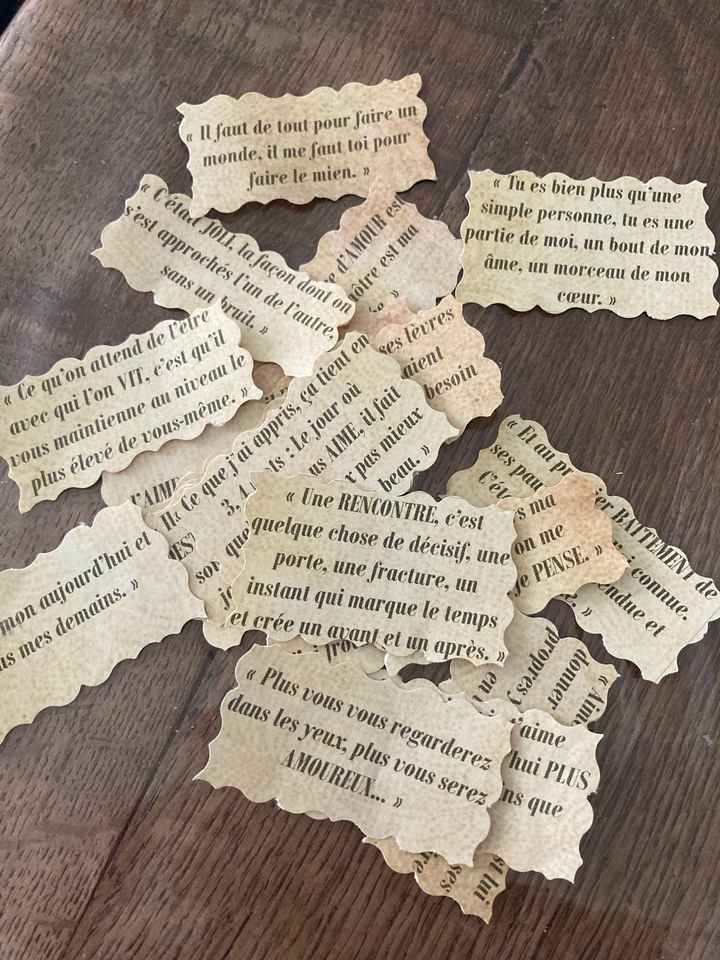 « Il faut de tout pour faire un
monde, il me faut toi pour
faire le mien. »
« Tu es bien plus qu'une
simple personne, tu es une
partie de moi, un bout de mon
âme, un morceau de mon
cœur. »
« C'était JOLI, la façon dont on
s'est approchés l'un de l'autre,
sans un bruit. »
d'AMOUR est
nôtre est ma
ses lèvres
aient
besoin
« Ce qu'on attend de l'être
avec qui l'on VIT, c'est qu'il
vous maintienne au niveau le
plus élevé de vous-même. »
« Ce que j'ai appris, ça tient en
3, 4 : Le jour où
AIME, il fait
pas mieux
beau. »
J'AIME
« Et au
ses
BAITEMENT de
connue.
et
ma
on me
PENSE. »
« Une RENCONTRE, c'est
quelque chose de décisif, une
porte, une fracture, un
instant qui marque le temps
et crée un avant et un après. »
mon aujourd'hui et
mes demains. »
propres
donner
en
« Plus vous vous regarderez
dans les yeux, plus vous serez
AMOUREUX... »
t'aime
PLUS
que
lui